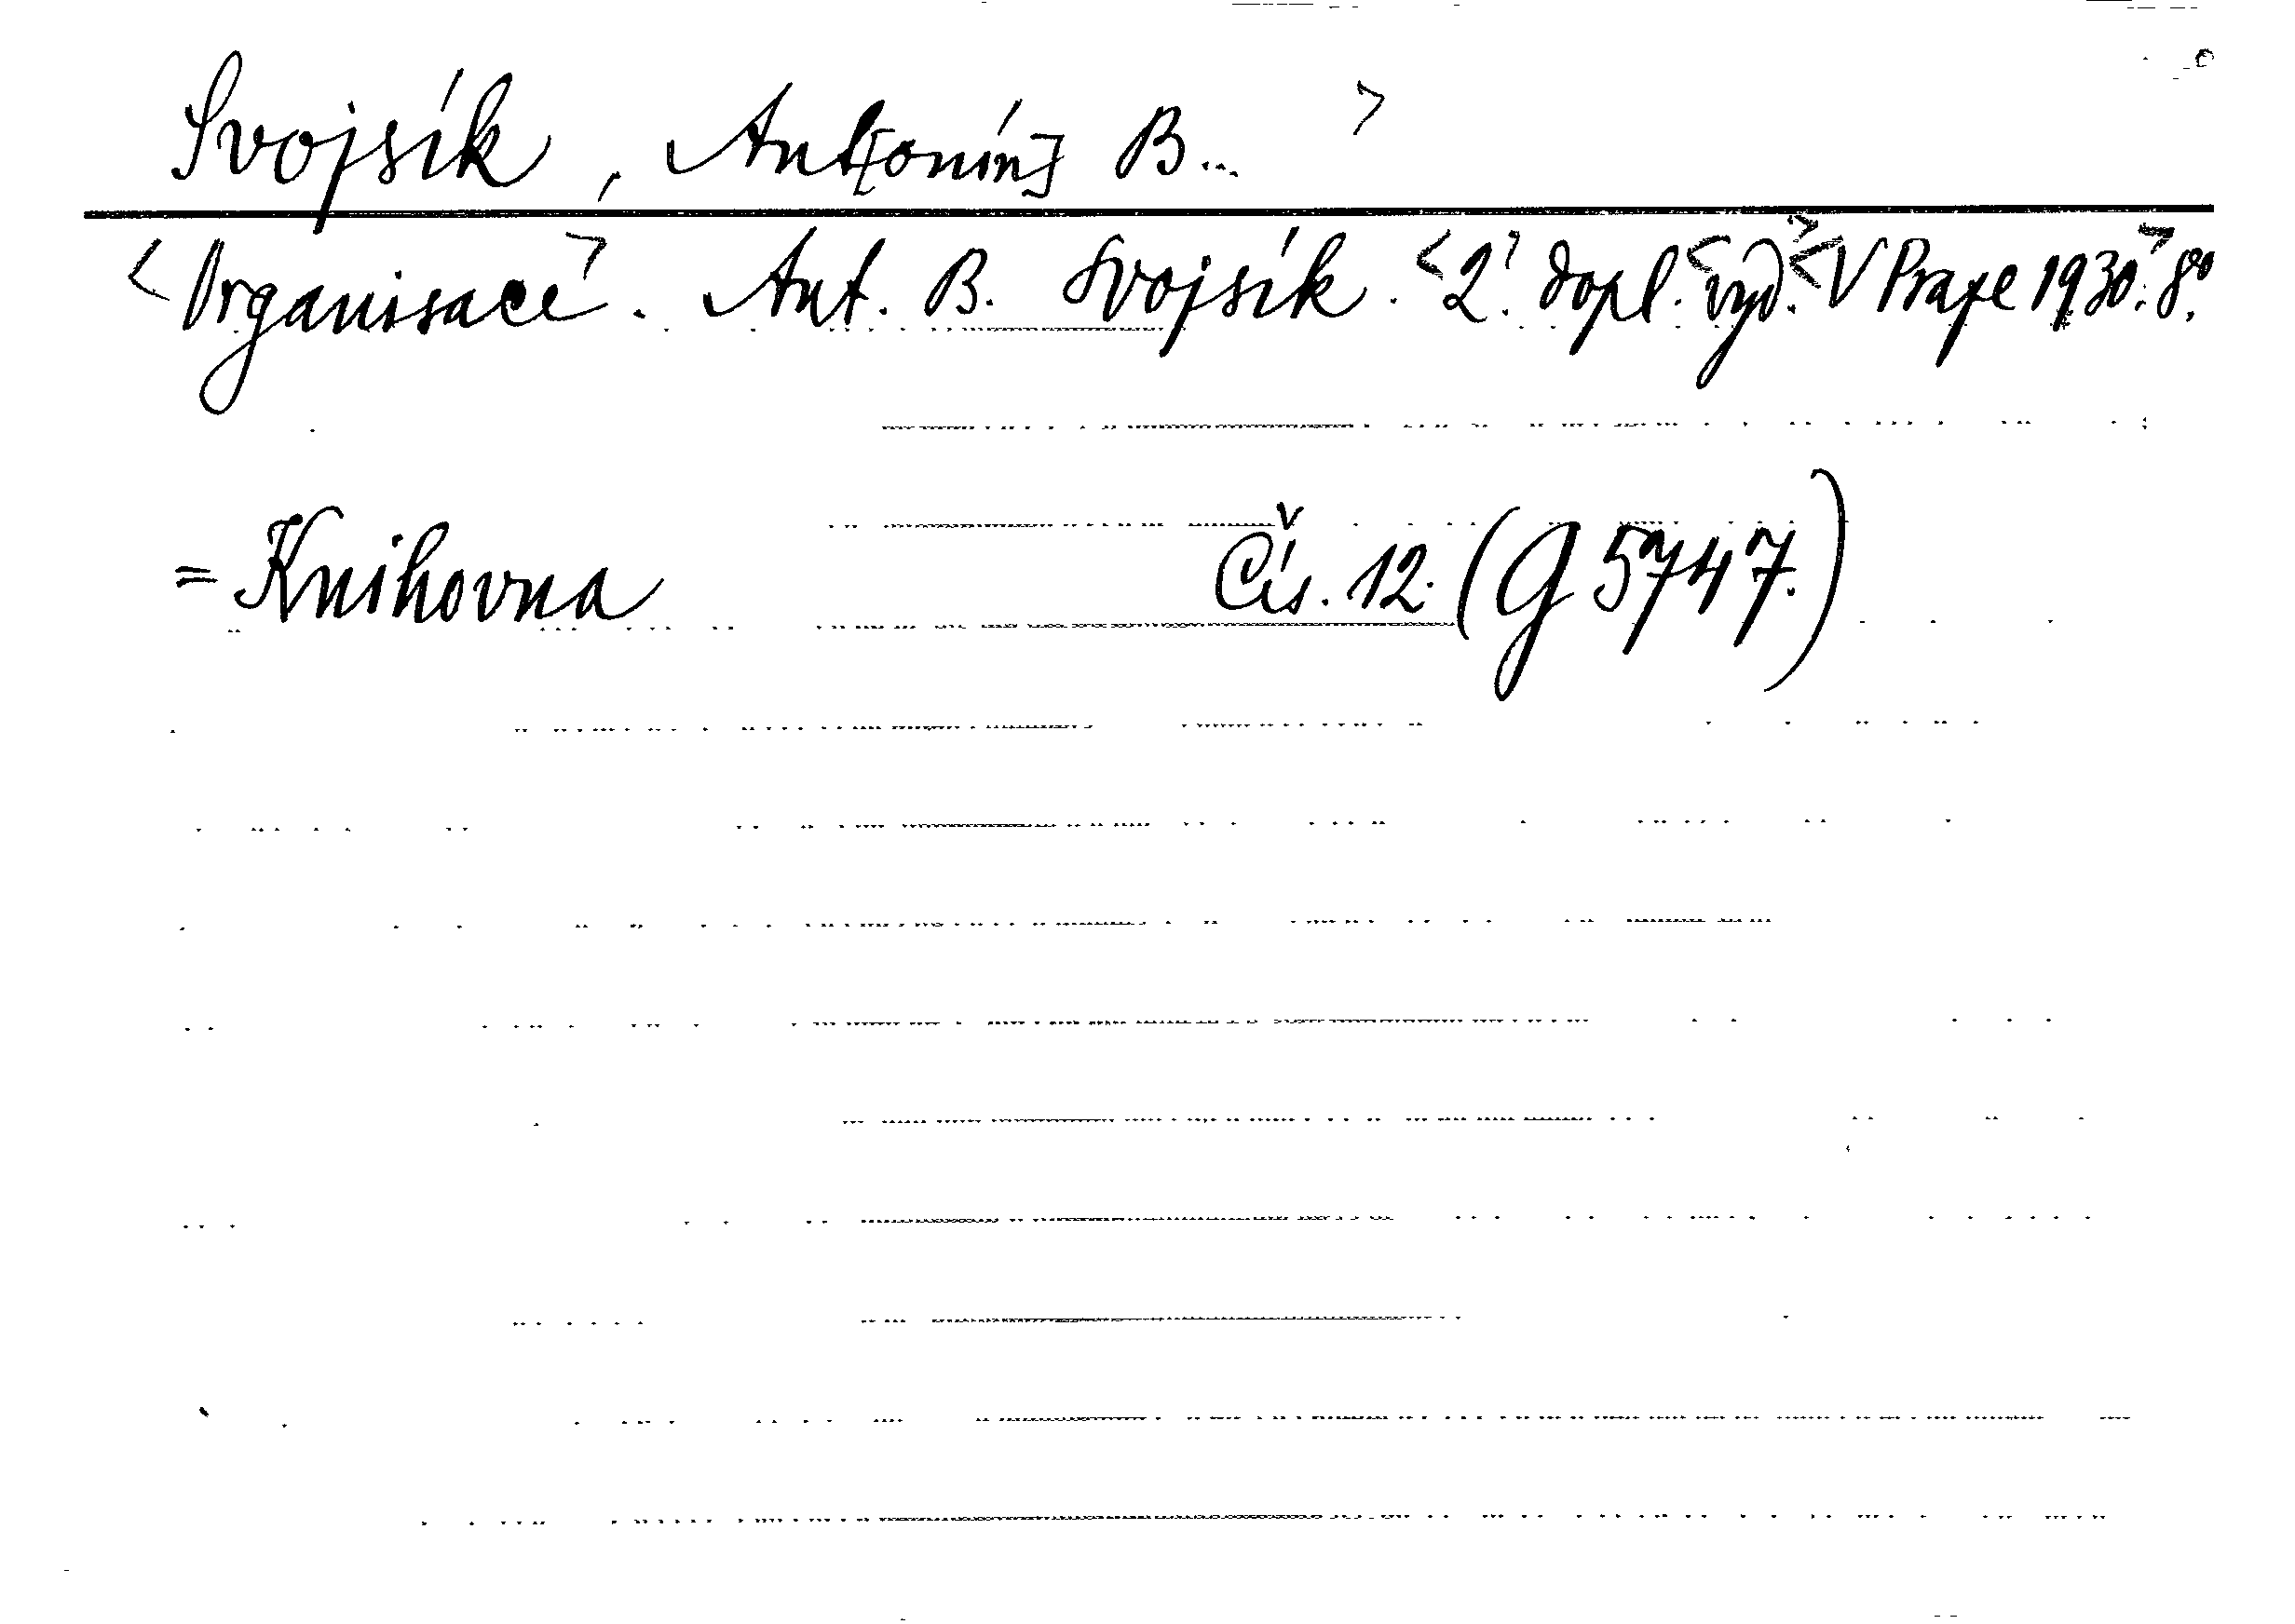 Svojsík, Ant[onín] B... >
<Organisace>. Ant. B. Svojsík. <2.> dopl. <vyd.> <V Praze 1930.> 8°.
= Knihovna Čís. 12. (G 5747.)